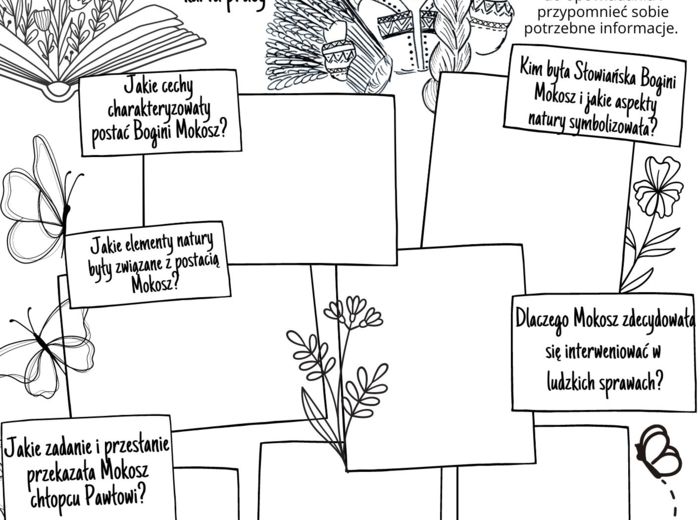 karta pracy
do opowiadania i
przypomnieć sobie
potrzebne informacje.
Jakie cechy
charakteryzowały
postać Bogini Mokosz?
Kim była Słowiańska Bogini
Mokosz i jakie aspekty
natury symbolizowała?
Jakie elementy natury
były związane z postacią
Mokosz?
Dlaczego Mokosz zdecydowała
się interweniować w
ludzkich sprawach?
Jakie zadanie i przesłanie
przekazała Mokosz
chłopcu Pawłowi?